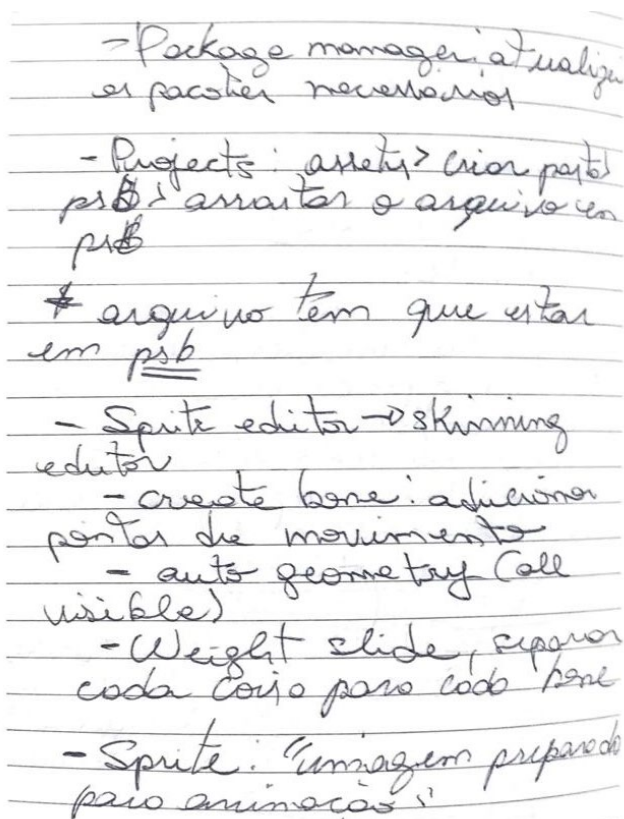 - Package manager: atualizar
os pacotes necessários
- Projects: assets > criar pasta >
psb > arrastar o arquivo em
psb
* arquivo tem que estar
em psb
- Sprite editor → skinning
editor
- create bone: adicionar
pontos de movimento
- auto geometry (all
visible)
- Weight slide, separar
cada coisa para cada bone
- Sprite: "imagem preparada
para animação"